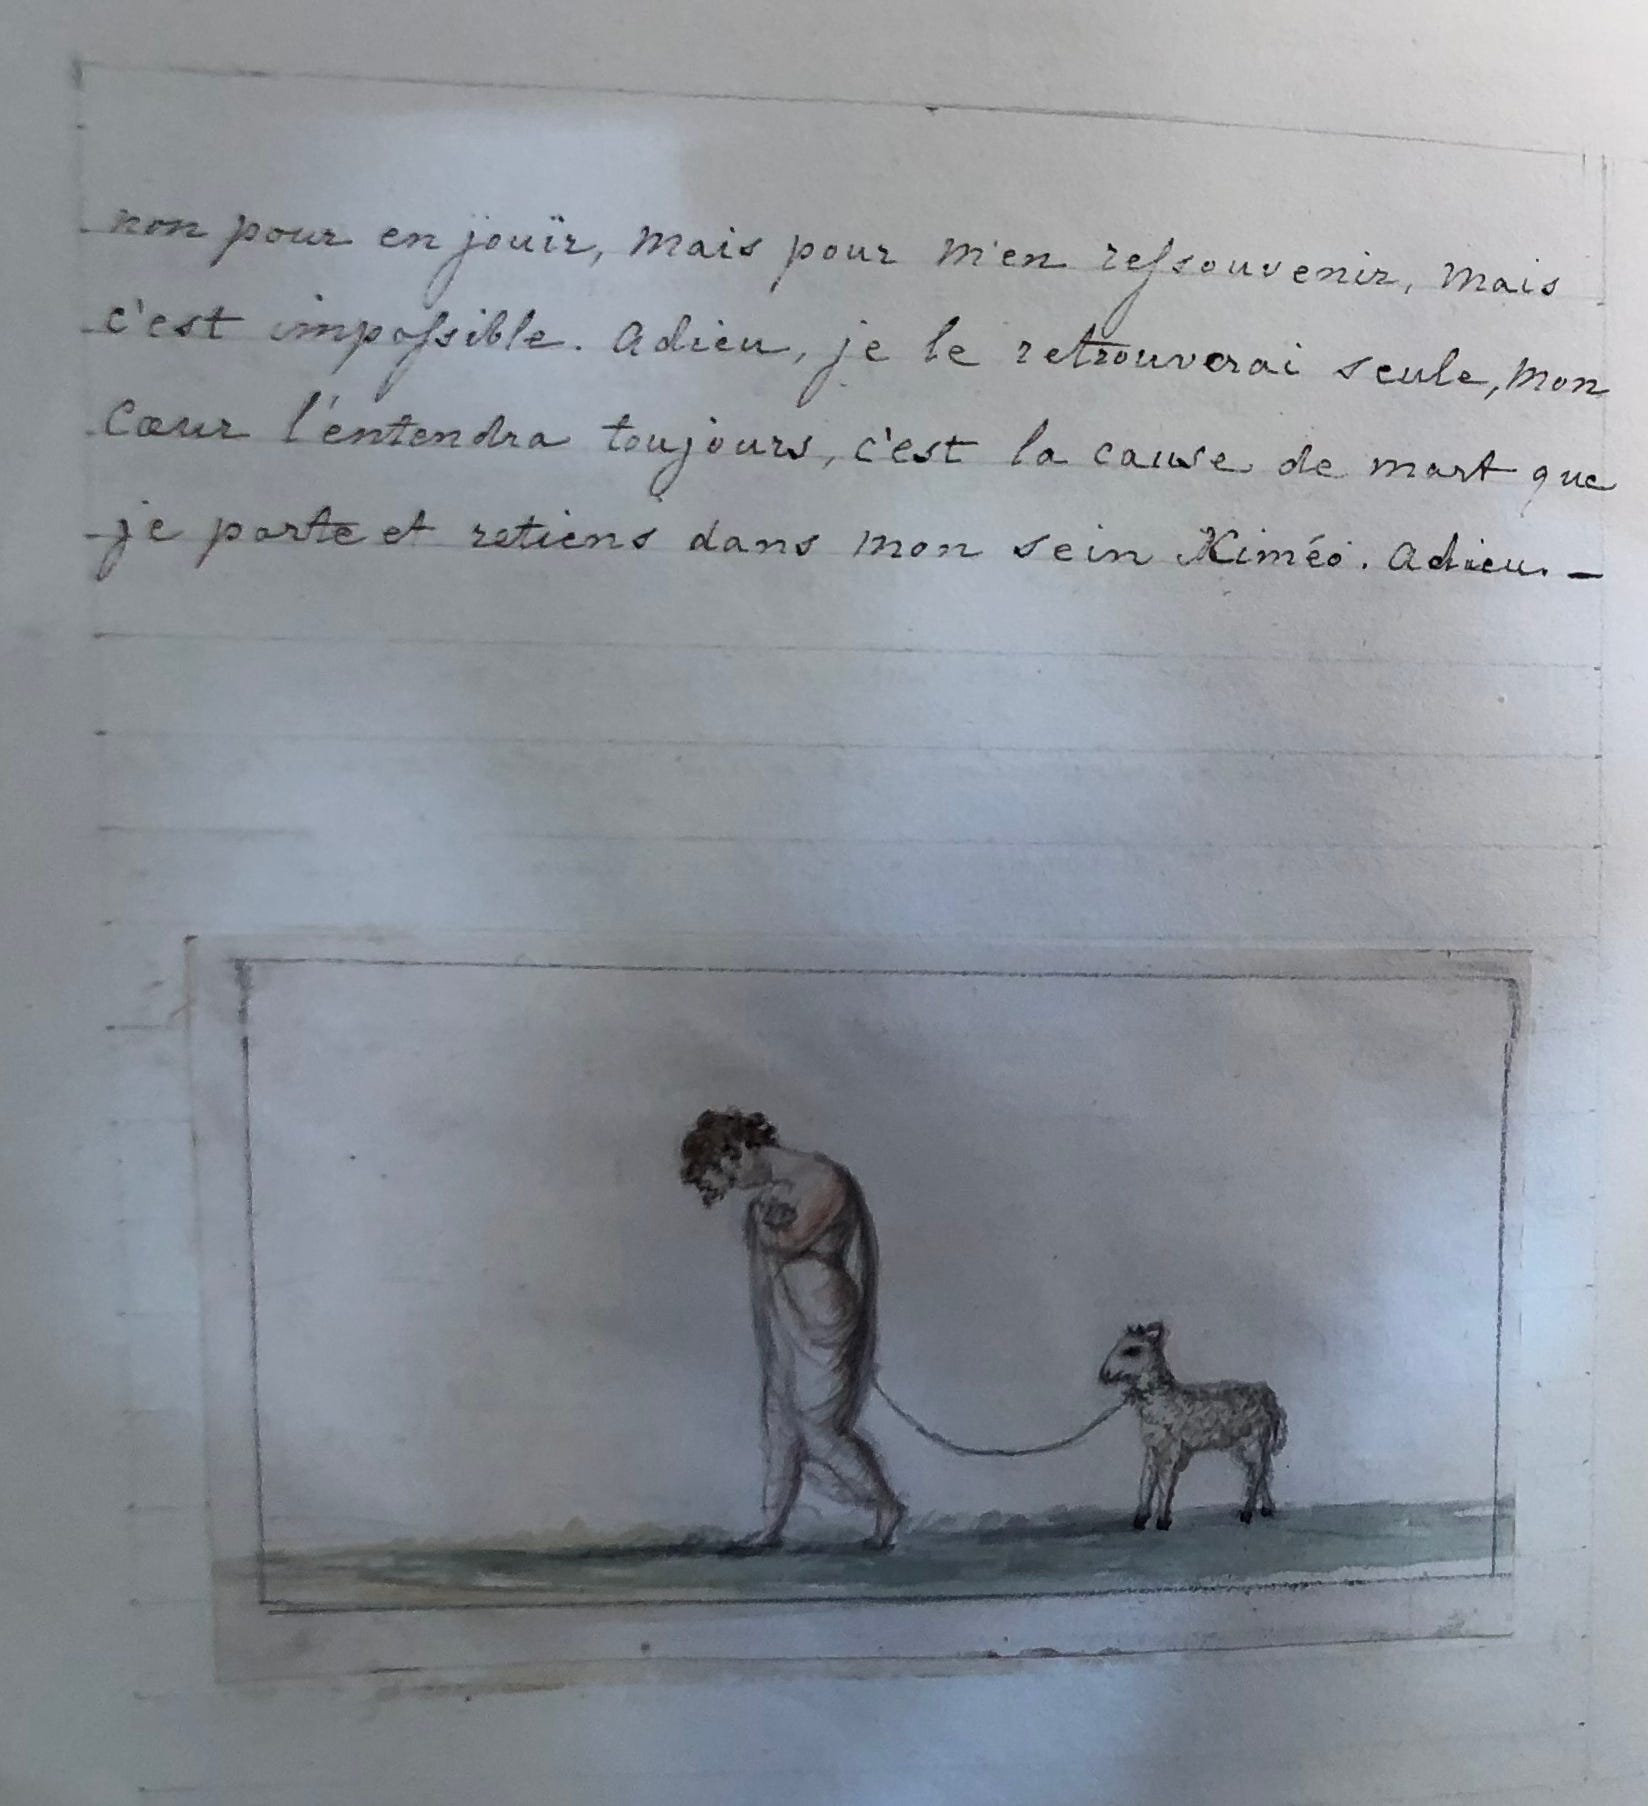 non pour en jouïr, mais pour m'en reſsouvenir, mais
c'est impoſsible. adieu, je le retrouverai seule, mon
Cœur l'entendra toujours, c'est la cause de mort que
je porte et retiens dans mon sein Kiméo. adieu. —